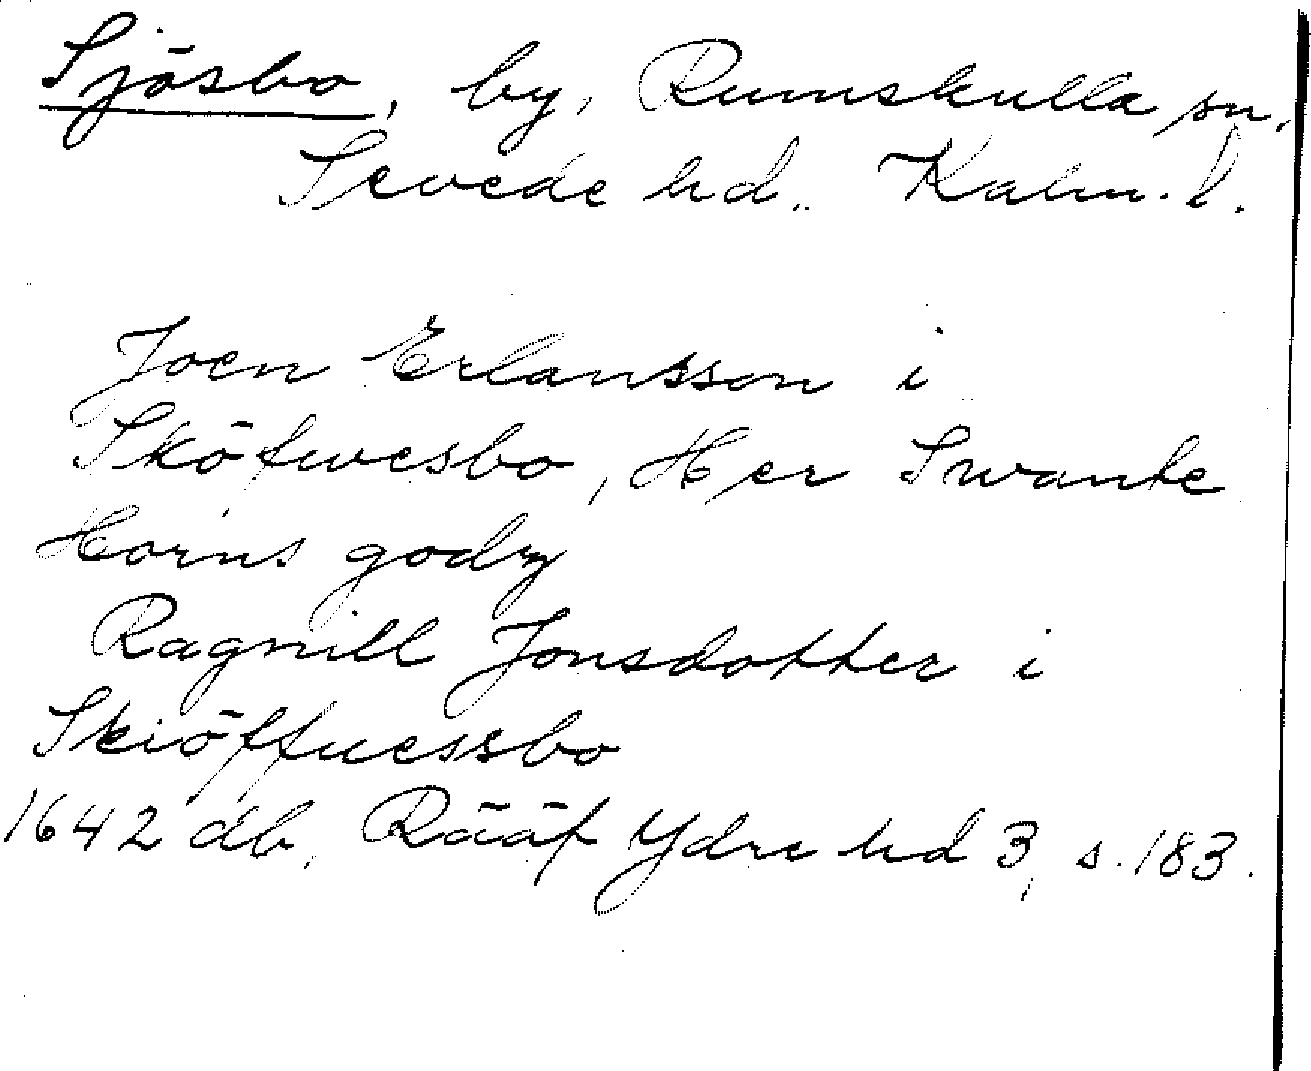 Sjösbo, by, Rumskulla sn.
Sevede hd. Kalm. l.
Joen Erlansson i
Sköfwesbo, Her Swante
Horns godz
Ragnill Jonsdotter i
Skiöffuessbo
1642 db, Rääf Ydre hd 3, s. 183.